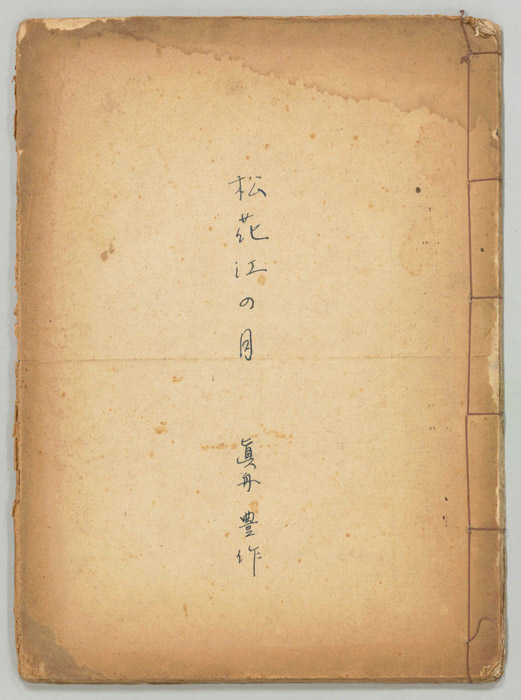 松花江の月 眞丹 豊作